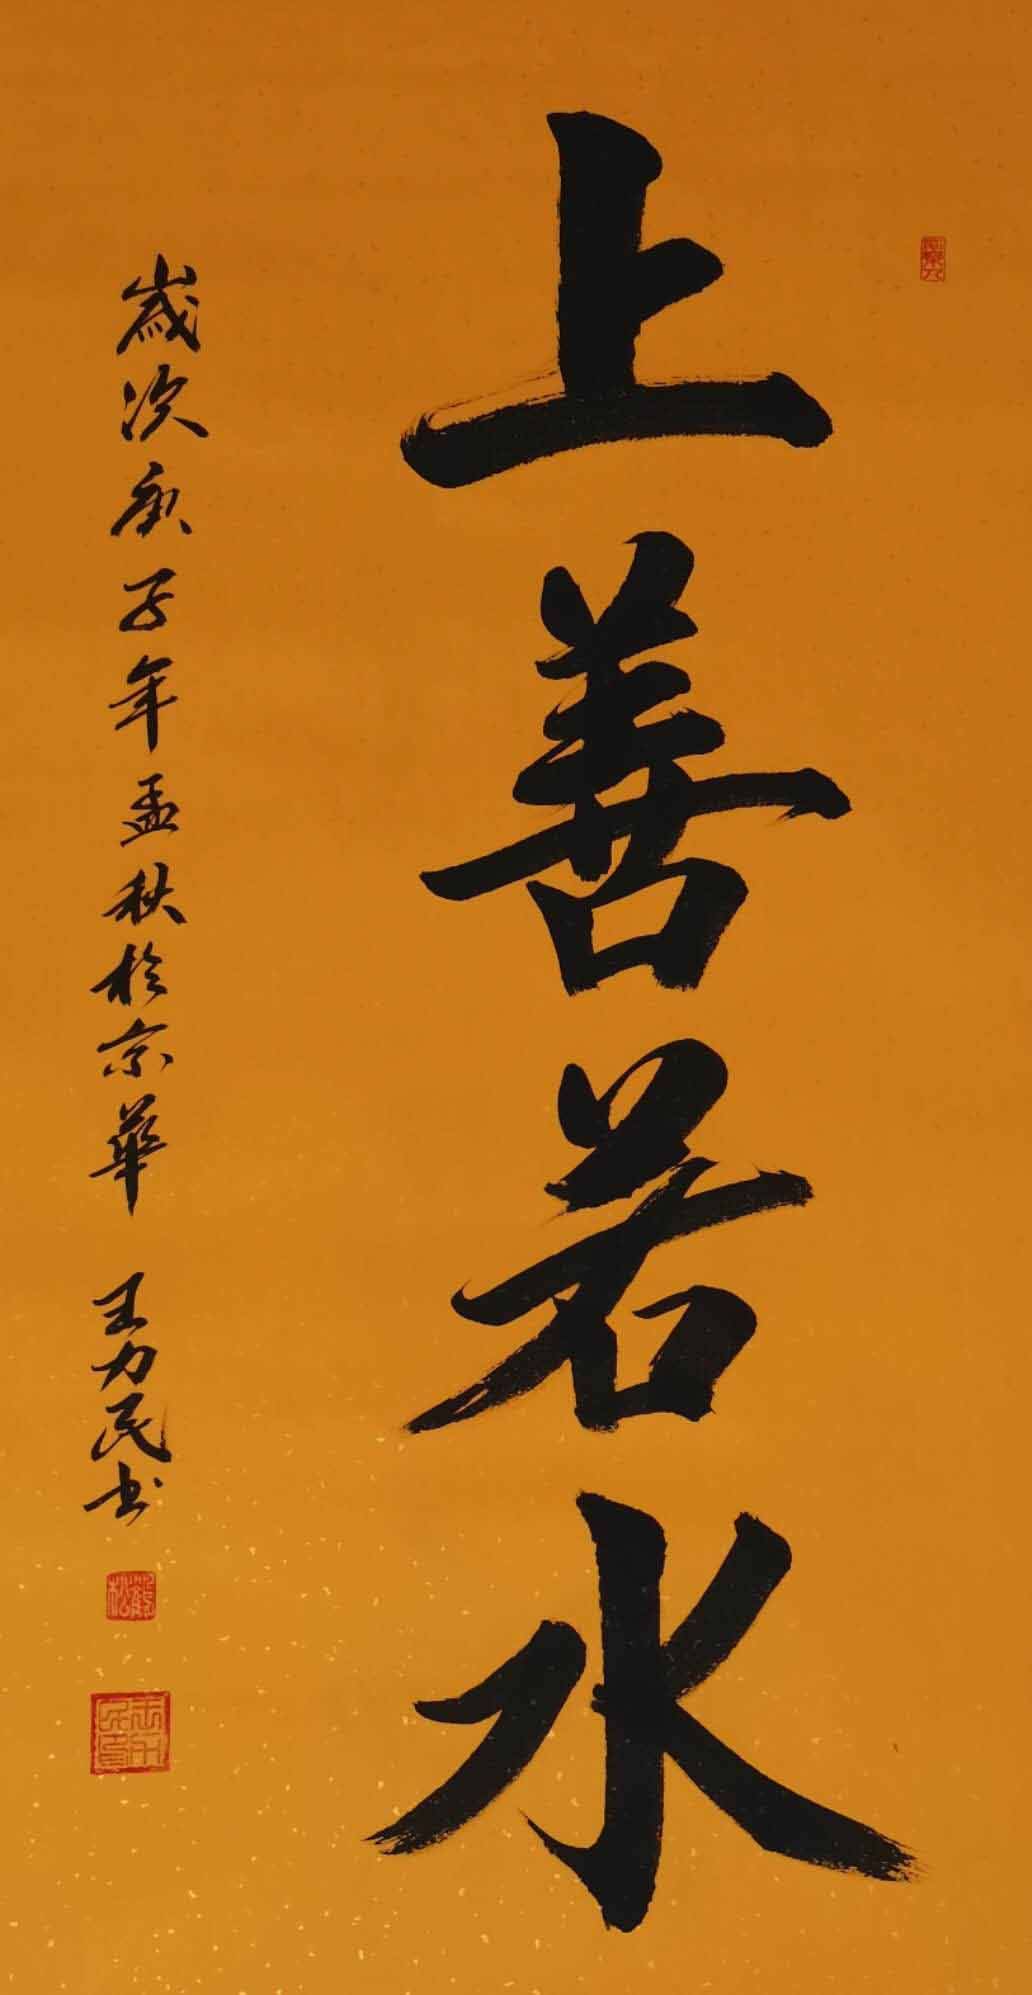 上善若水
歲次庚子年孟秋於京華 王力民书